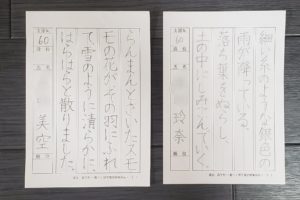 細い糸のような銀色の
雨が降っている。
落ち葉をぬらし、
土の中にしみこんでいく。
玲奈
らんまんとさいたスモ
モの花がその羽にふれ
て、雪のように清らかに、
はらはらと散りました。
美空